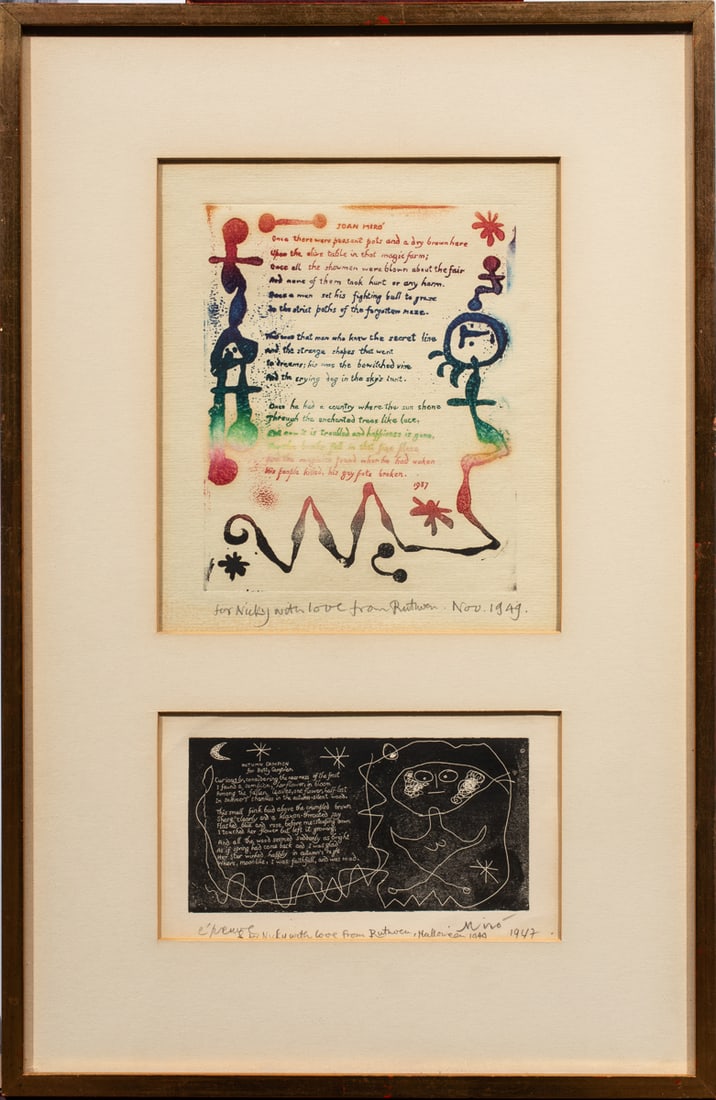 JOAN MIRÓ
Once there were peasant pots and a dry brown hare
Upon the olive table in that magic farm;
Once all the showmen were blown about the fair
And none of them took hurt or any harm.
Once a man set his fighting bull to graze
In the strict paths of the forgotten maze.
This was that man who knew the secret line
And the strange shapes that went
In dreams; his was the bewitched vine
And the crying dog in the sky's tent.
Once he had a country where the sun shone
Through the enchanted trees like lace,
But now it is troubled and happiness is gone,
For the bombs fell in that fine place
And the magician found when he had woken
His people killed, his gay pots broken.
1937
for Nicky with love from Ruthven. Nov. 1949.
AUTUMN CAMPION
for Dolly
Curiously, considering the nearness of the frost
I found a campion, star flower, in bloom
Among the fallen leaves, one flower, half-lost
In summer's chances in the autumn-silent wood.
This small pink bud above the crumpled brown
Shone clearly and a klaxon-throated jay
Flashed blue and rose before me
I touched her flower but left it growing;
And all the wood seemed suddenly as bright
As if spring had come back and I was glad
Her star winked happily in autumn's
Where, moonlike, I was faithful, and was mad.
épreuve
for Nicky with love from Ruthven, Halloween 1949
Miró 1947.